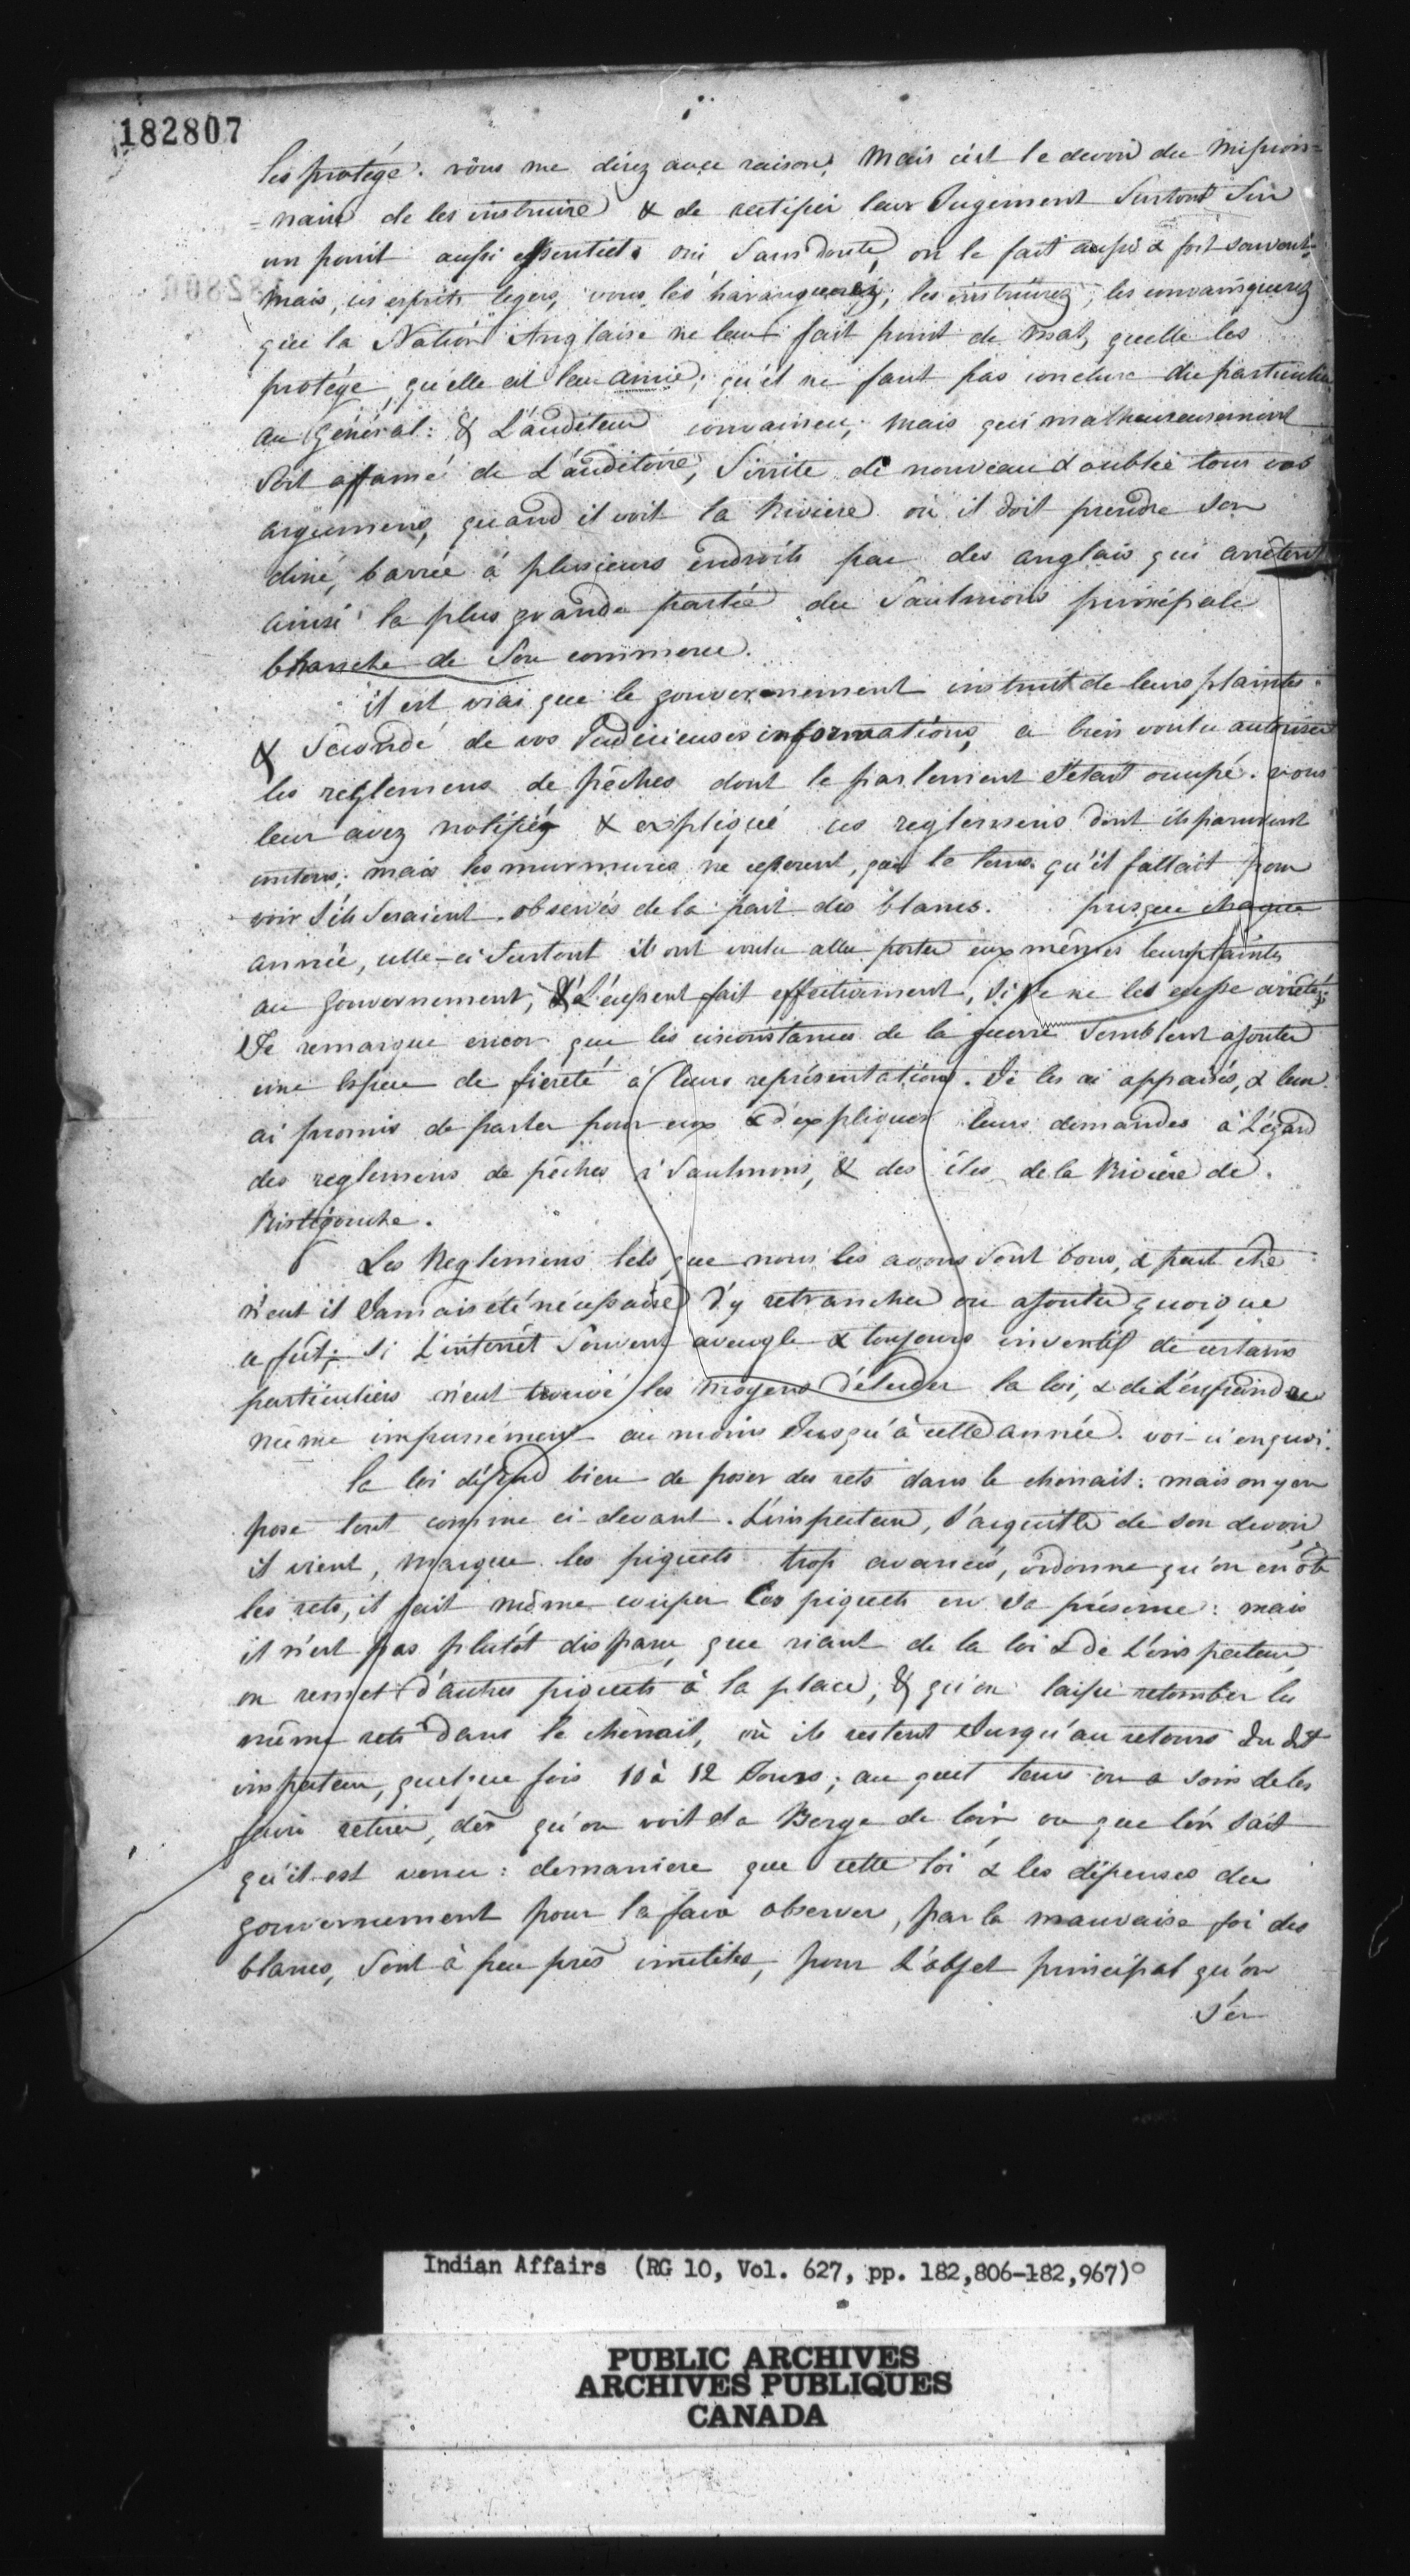 182807
les protégé. vous me direz avec raison, Mais c'est le devoir du Mission=
=naire de les instruire & de rectifier leur Jugement Surtout Sur
un point aussi essentiel. oui Sans doute, on le fait aussi & fort souvent.
Mais, ces esprits legers, vous les haranguerez, les instruirez, les convainquerez
que la Nation Anglaise ne leur fait point de mal, quelle les
protége, qu'elle est leur amie; qu'il ne faut pas conclure du particulier
au Général: & L'auditeur convaincu, mais qui malheureusement
Sort affamé de L'auditoire, S'irrite de nouveau & oublie tous vos
argumens, quand il voit la Riviere où il doit prendre Son
diné, barrée à plusieurs endroits par des anglais qui arrêtent
ainsi la plus grande partie du Saulmons principale
branche de Son commerce.
il est vrai que le gouvernement instruit de leurs plaintes
& Secondé de vos Judicieuses informations, a bien voulu autoriser
les reglemens de pêches dont le parlement S'etait occupé. vous
leur avez notifiés & expliqué ces reglemens dont ils parurent
contens; mais les murmures ne cesserent, que le tems qu'il fallait pour
voir S'ils Seraient observés de la part des blancs. presque chaque
année, celle-ci Surtout ils ont voulu aller porter eux mêmes leurs plaintes
au Gouvernement, & L'eussent fait effectivement, Si Je ne les eusse arrêté;
Je remarque encor que les circonstances de la guerre Semblent ajouter
une Espece de fiereté à leurs représentations. Je les ai appaisés, & leur
ai promis de parler pour eux & d'expliquer leurs demandes à L'égard
des reglemens de pêches à Saulmons, & des îles de la Riviére de
Ristigouche.
Les Reglemens tels que nous les avons Sont bons, & peut etre
n'eut il Jamais été nécessaire d'y retrancher ou ajouter quoique
ce fût; Si L'interrêt Souvent aveugle & toujours inventif de certains
particuliers n'eut trouvé les moyens d'éluder la loi, & de L'enfraindre
même impunément au moins Jusqu'à cette année. voi-ci enquoi.
la loi défend bien de poser des rets dans le chenail: mais on y en
pose tout comme ci-devant. L'inspecteur, S'acquitte de Son devoir,
il vient, marque les piquets trop avancés, ordonne qu'on en ôte
les rets, il fait même couper les piquets en Sa présence: mais
il n'est pas plutôt disparu, que riant de la loi & de L'inspecteur,
on remet d'autres piquets à la place, & qu'on laisse retomber les
même rets dans le chenail, où ils restent Jusqu'au retours du dit
inspecteur, quelque fois 10 à 12 Jours; au quel tems on a soin de les
faire retirer, dès qu'on voit Sa Berge de loin, ou que l'on Sait
qu'il est venu: demaniere que cette loi & les dépenses du
gouvernement pour la faire observer, par la mauvaise foi des
blancs, Sont à peu près inutiles, pour L'objet principal qu'on
S'en
Indian Affairs (RG 10, Vol. 627, pp. 182,806-182,967)
PUBLIC ARCHIVES
ARCHIVES PUBLIQUES
CANADA